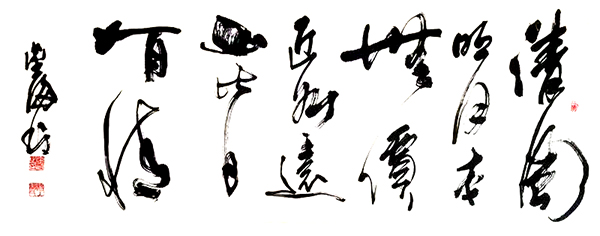 清風
明月本
無價
近水遠
山皆
有情